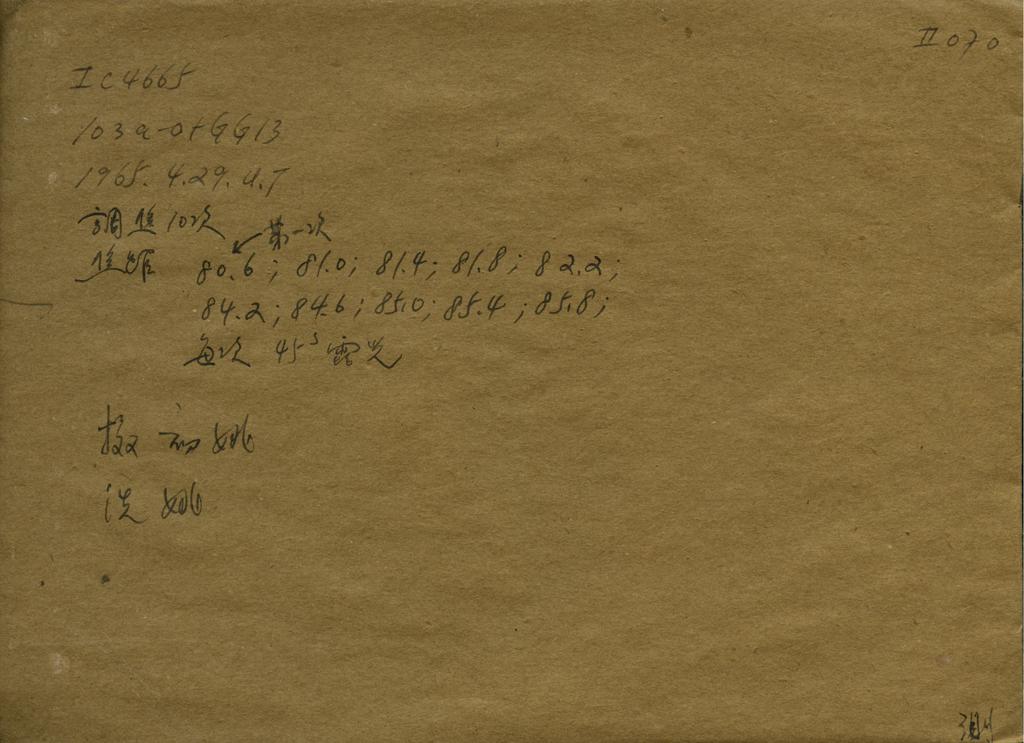 II 070
IC 4665
103a-O+GG13
1965. 4.29. U.T
調焦10次
第一次
焦距 80.6; 81.0; 81.4; 81.8; 82.2;
84.2; 84.6; 85.0; 85.4; 85.8;
每次 45s 露光
摄 初 姚
洗 姚
测